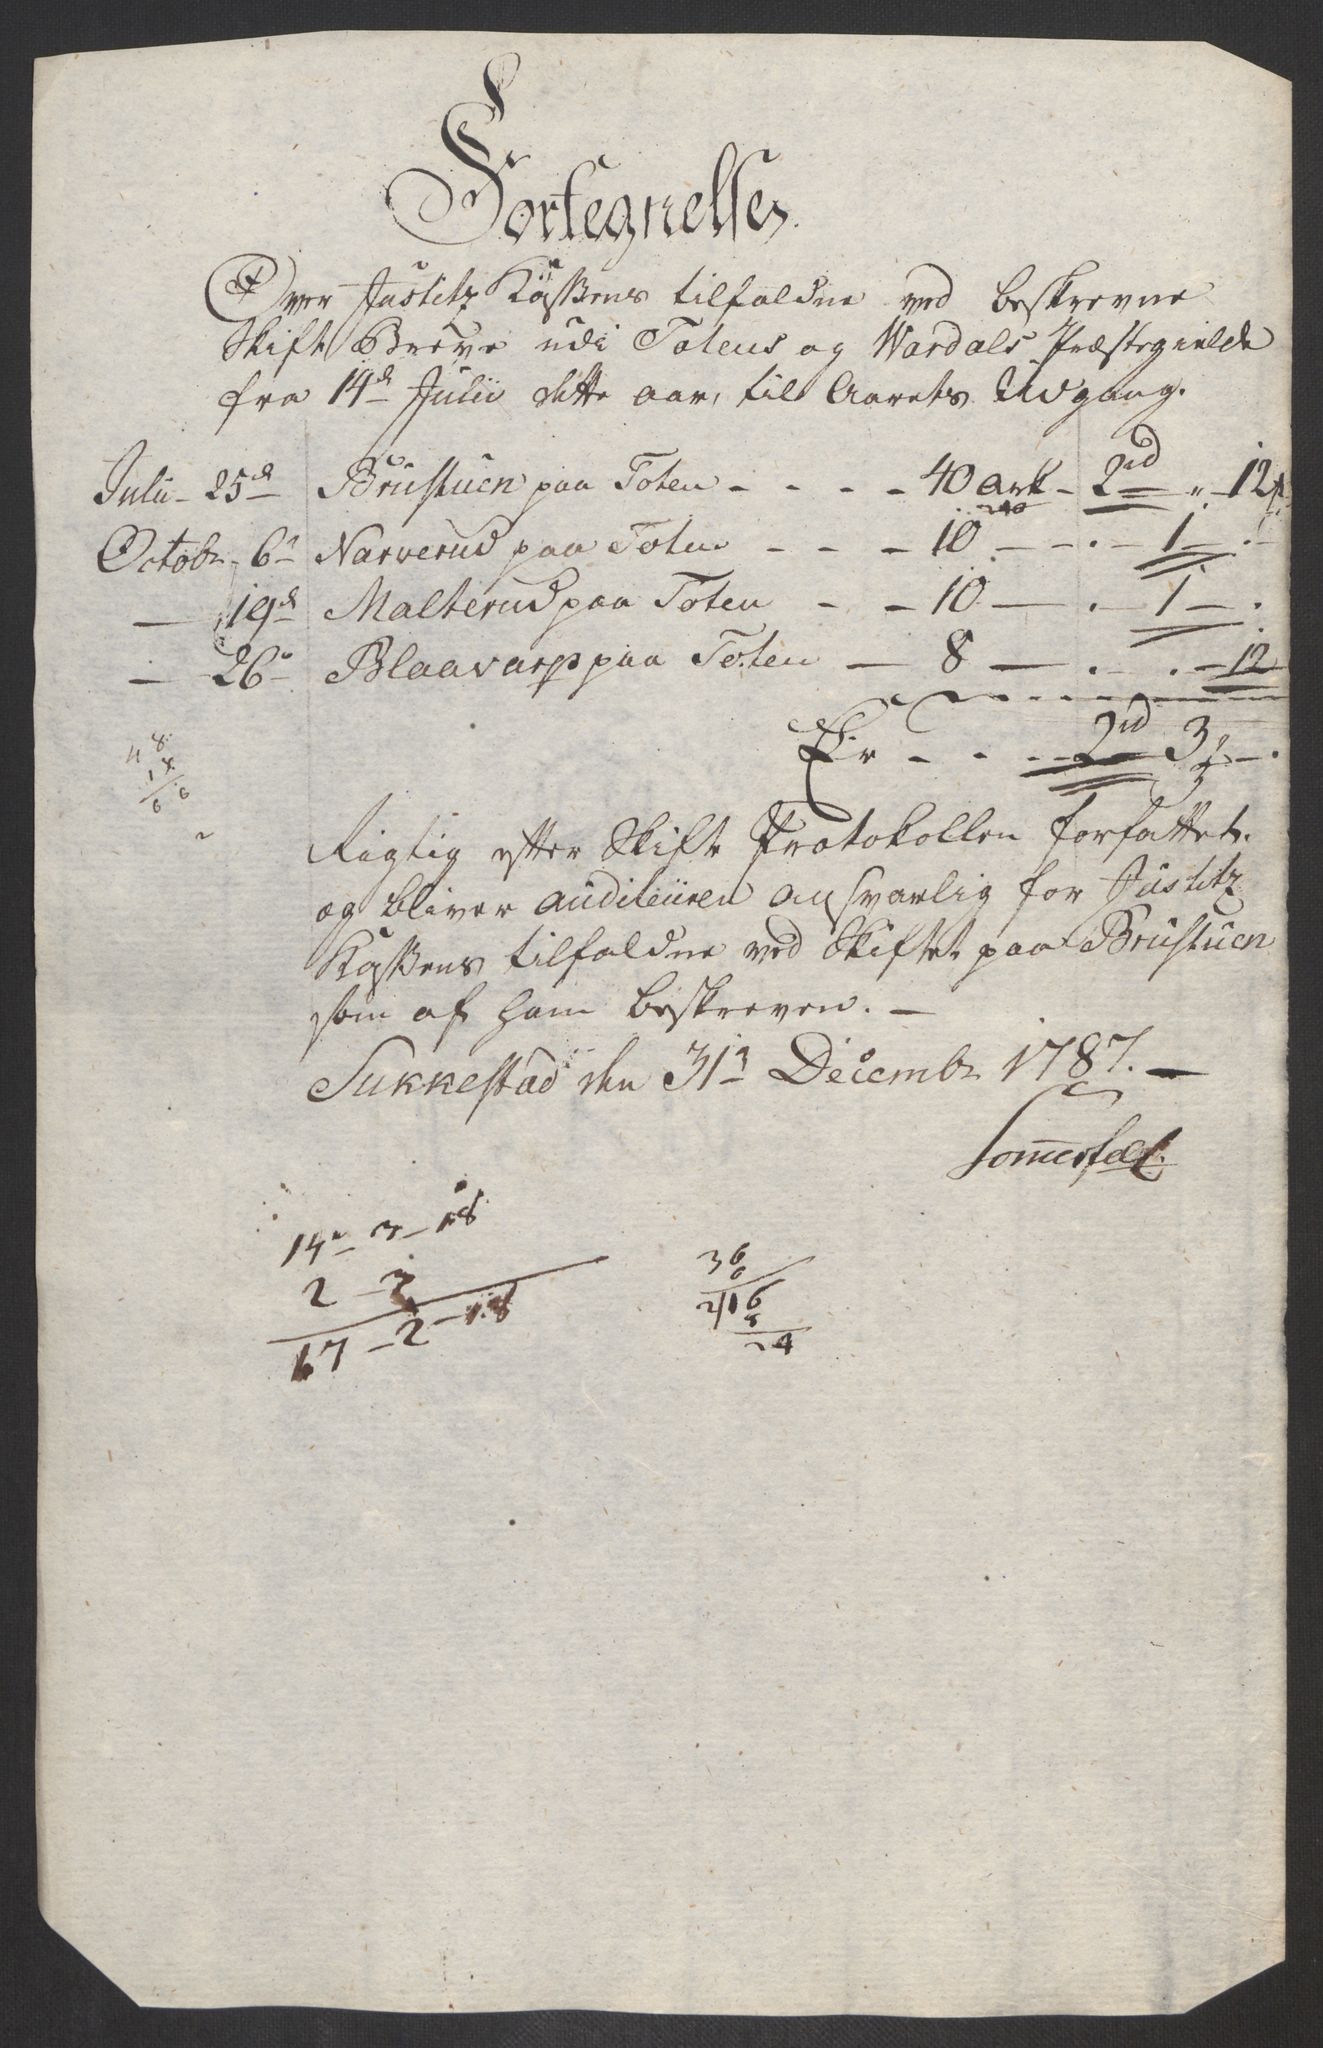 Fortegnelse
Over Justitz Kassens tilfaldne ved beskrevne
Skifte Breve udi Totens og Wardals Præstegielde
fra 14d Julii dette aar, til Aarets Udgang.
Julii - 25d Brustuen paa Toten - - - - 40 ark - 2rd " - 12s
240
Octobr - 6t Narverud paa Toten - - - 10 - - . - 1 - . -
— 19d Malterud paa Toten - - 10 — . - 1 - .
— 26t Blaavarp paa Toten — 8 — . - . - 12
Er - - . - 2rd 3 - .
Rigtig efter Skifte Protokollen forfattet.
og bliver auditeuren ansvarlig for Justitz
Kassens tilfaldne ved Skiftet paa Brustuen
som af ham beskreven. —
Sukkestad den 31t Decembr 1787. —
Somerfeldt.
14 - 3 - 18
2 - 3
17 - 2 - 18
36
6
216
24